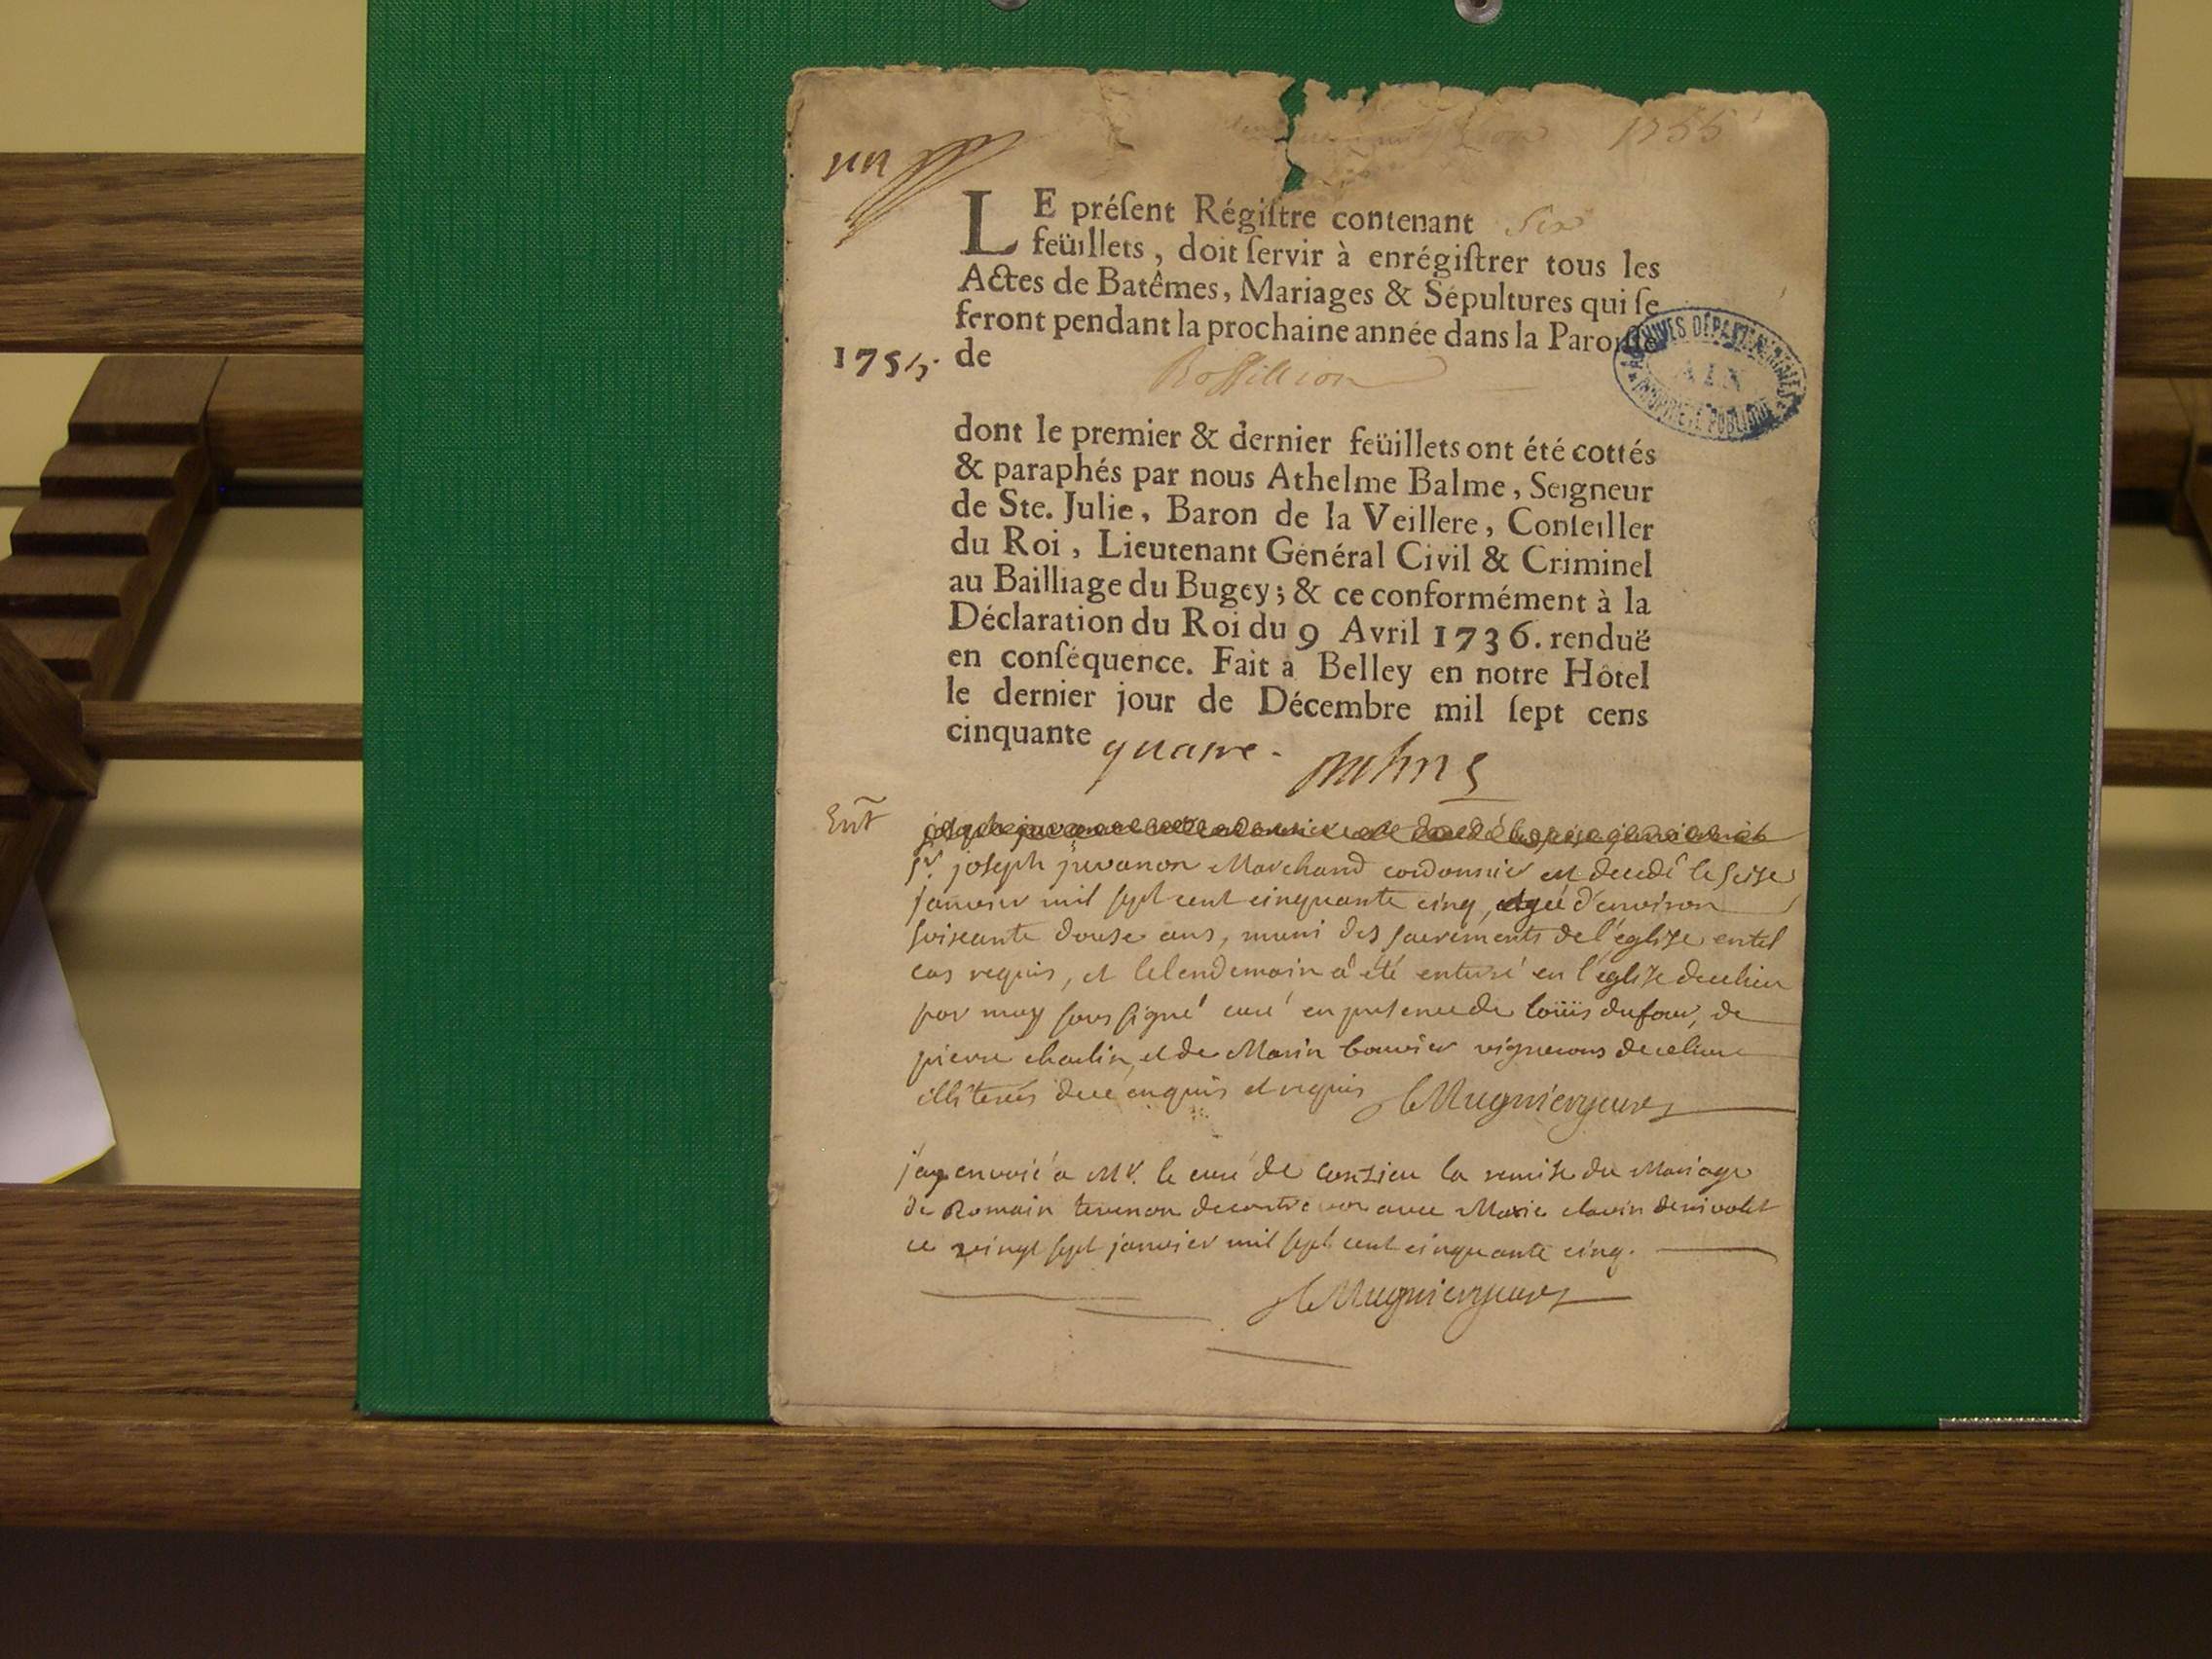 1755
un
LE préſent Régiſtre contenant Six
feüillets, doit ſervir à enrégiſtrer tous les
Actes de Batêmes, Mariages & Sépultures qui ſe
feront pendant la prochaine année dans la Paroiſſe
1755. de
Rossillion
ARCHIVES DÉPARTEMENTALES
AIN
PROPRIÉTÉ PUBLIQUE
dont le premier & dernier feüillets ont été cottés
& paraphés par nous Athelme Balme, Seigneur
de Ste. Julie, Baron de la Veillere, Conſeiller
du Roi, Lieutenant Général Civil & Criminel
au Bailliage du Bugey; & ce conformément à la
Déclaration du Roi du 9 Avril 1736. renduë
en conſéquence. Fait à Belley en notre Hôtel
le dernier jour de Décembre mil ſept cens
cinquante quatre.
Ent
Sr. joseph juvanon Marchand cordonnier est decedé le seise
janvier mil sept cent cinquante cinq, agé d'environ
soixante douse ans, muni des sacrements de l'église en tel
cas requis, et le lendemain a été enterré en l'église de ce lieu
par moy sous signé curé en presence de loüis dufour, de
pierre charlin, et de Marin bouvier vignerons de ce lieu
illiterés de ce enquis et requis Mugnier curé
j'ay envoié a Mr. le curé de Conzieu la remise du Mariage
de Romain tevenon de contrevoz avec Marie clavin de nivolet
ce vingt sept janvier mil sept cent cinquante cinq.
Mugnier curé